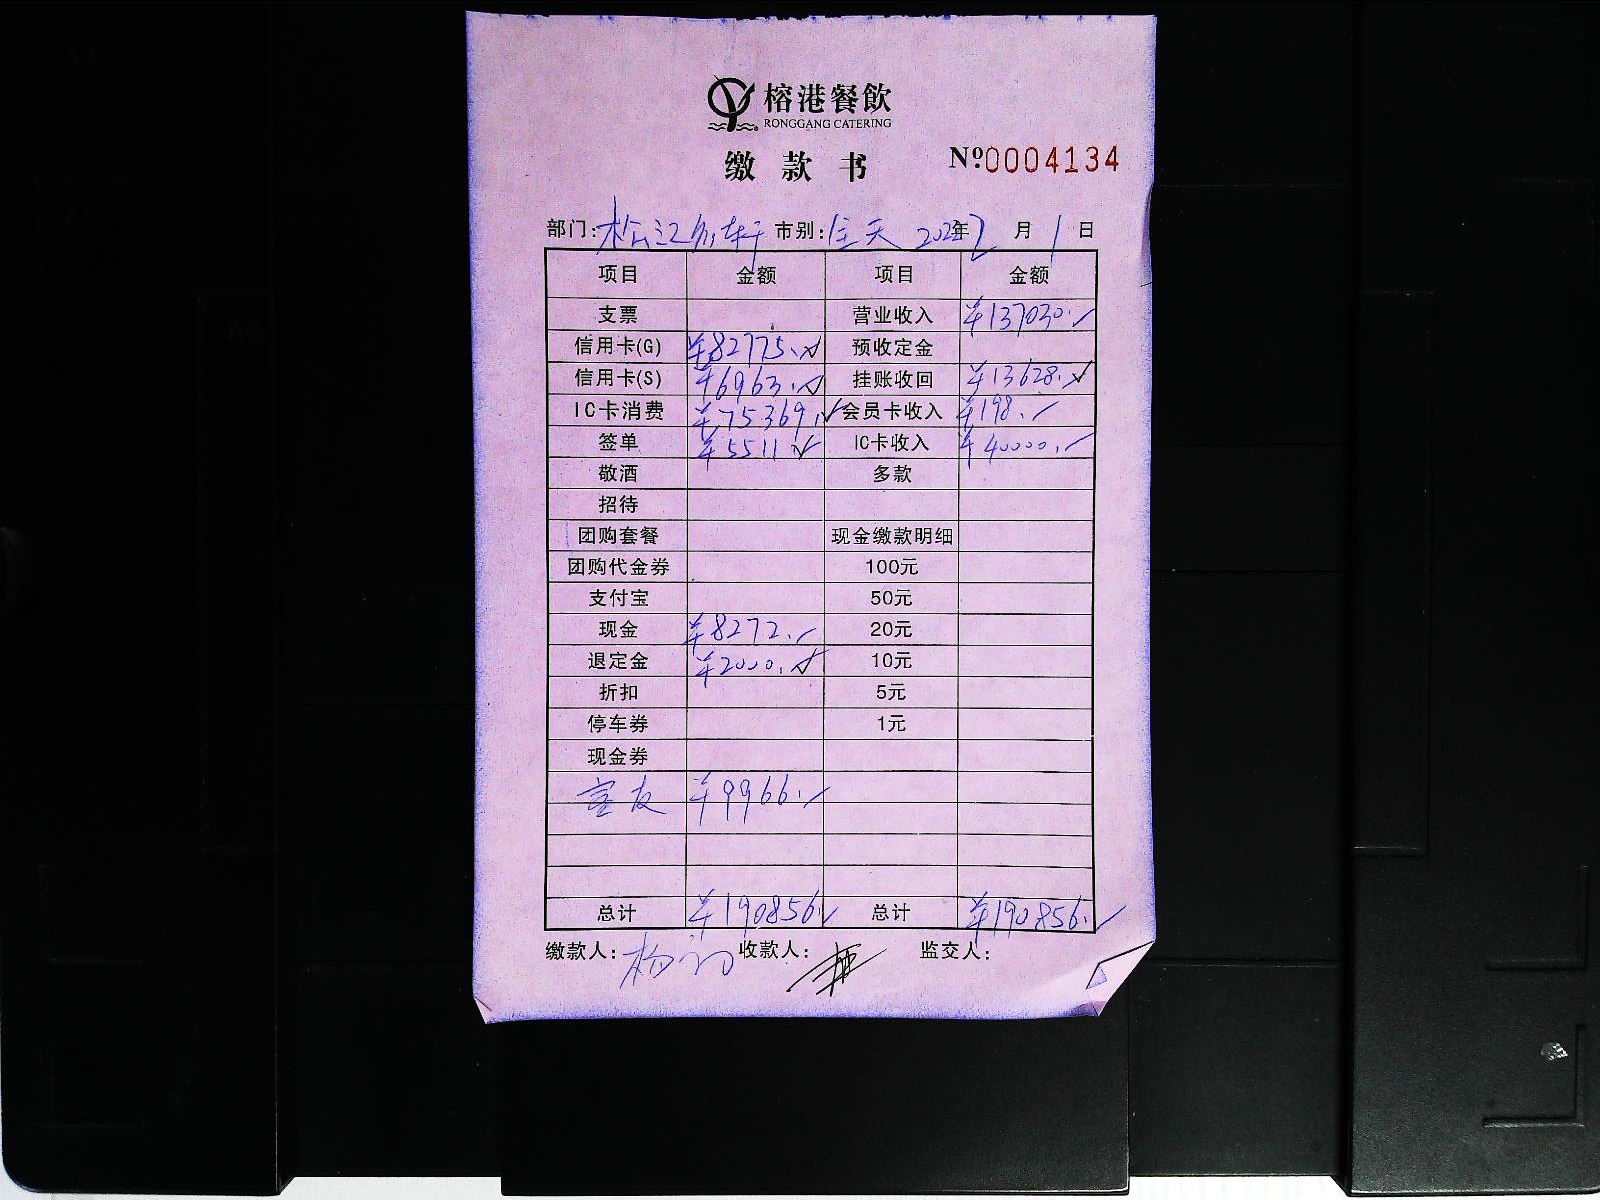 榕港餐飲
RONGGANG CATERING
缴款书 Nº0004134
部门:松江 轩 市别:全天 年2月1日
项目 金额 项目 金额
支票 营业收入 ¥137030.
信用卡(G) ¥82775. 预收定金
信用卡(S) ¥6963. 挂账收回 ¥13628.
IC卡消费 ¥75369. 会员卡收入 ¥198.
签单 ¥5511 IC卡收入 ¥40000.
敬酒 多款
招待
团购套餐 现金缴款明细
团购代金券 100元
支付宝 50元
现金 ¥8272. 20元
退定金 ¥2000. 10元
折扣 5元
停车券 1元
现金券
¥9966.
总计 ¥190856. 总计 ¥190856.
缴款人:杨 收款人: 监交人: